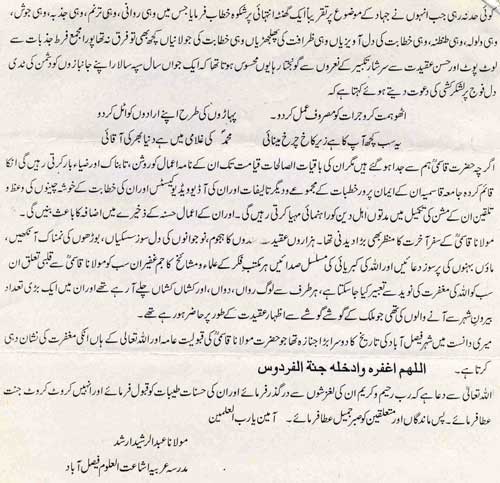 کوئی حد نہ رہی جب انہوں نے جہاد کے موضوع پر تقریباً ایک گھنٹہ انتہائی پر شکوہ خطاب فرمایا جس میں وہی روانی، وہی ترنم، وہی جذبہ، وہی جوش،
وہی ولولہ، وہی طنطنہ، وہی خطابت کی دل آویزیاں وہی ظرافت کی پھلجھڑیاں وہی خطابت کی جولانیاں کچھ بھی تو فرق نہ تھا پورا مجمع فرط جذبات سے
لوٹ پوٹ اور حسن عقیدت سے سرشار تکبیر کے نعروں سے گونجتا رہا یوں محسوس ہوتا تھا کہ ایک جواں سال سپہ سالار اپنے جانبازوں کو دشمن کی ٹڈی
دل فوج پر لشکر کشی کی دعوت دیتے ہوئے کہتا ہے کہ
اٹھو ہمت کرو جرات کو مصروف عمل کر دو۔ پہاڑوں کی طرح اپنے ارادوں کو اٹل کر دو
یہ سب کچھ آپ کا ہے زیر کاخ چرخ مینائی محمدؐ کی غلامی میں ہے دنیا بھر کی آقائی
اگرچہ حضرت قاسمیؒ ہم سے جدا ہو گئے ہیں مگر ان کی باقیات الصالحات قیامت تک ان کے نامہ اعمال کو روشن، تابناک اور ضیاء بار کرتی رہیں گی انکا
قائم کردہ جامعہ قاسمیہ ان کے ایمان پرور خطبات کے مجموعے و دیگر تالیفات اور ان کی آڈیو ویڈیو کیسٹس اور ان کی خطابت کے خوشہ چینوں کی وعظ و
تلقین ان کے مشن کی تکمیل میں مدتوں اہل دین کو راہنمائی مہیا کرتی رہیں گی۔ اور ان کے اعمال حسنہ کے ذخیرے میں اضافہ کا باعث بنیں گی۔
مولانا قاسمیؒ کے سفر آخرت کا منظر بھی بڑا دیدنی تھا۔ ہزاروں عقیدت مندوں کا ہجوم، نوجوانوں کی دل سوز سسکیاں، بوڑھوں کی نمناک آنکھیں،
ماؤں بہنوں کی پرسوز دعائیں اور اللہ کی کبریائی کی مسلسل صدائیں ہر مکتب فکر کے علماء و مشائخ کا جم غفیر ان سب کو مولانا قاسمیؒ سے قلبی تعلق ان
سب کو اللہ کی مغفرت کی نوید سے تعبیر کیا جا سکتا ہے، ہر طرف سے لوگ رواں، دواں، اور کشاں کشاں چلے آ رہے تھے اور ان میں ایک بڑی تعداد
بیرون شہر سے آنے والوں کی تھی جو ملک کے گوشے گوشے سے اظہار عقیدت کے طور پر حاضر ہو رہے تھے۔
میری دانست میں شہر فیصل آباد کی تاریخ کا دوسرا بڑا جنازہ تھا جو حضرت مولانا قاسمیؒ کی قبولیت عامہ اور اللہ تعالیٰ کے ہاں انکی مغفرت کی نشان دہی
کرتا ہے۔ اللهم اغفره وادخله جنة الفردوس
اللہ تعالیٰ سے دعا ہے کہ رب رحیم و کریم ان کی لغزشوں سے درگذر فرمائے اور ان کی حسنات طیبات کو قبول فرمائے اور انہیں کروٹ کروٹ جنت
عطا فرمائے۔ پس ماندگان اور متعلقین کو صبر جمیل عطا فرمائے۔ آمین یارب العلمین
مولانا عبدالرشید ارشد
مدرسہ عربیہ اشاعت العلوم فیصل آباد